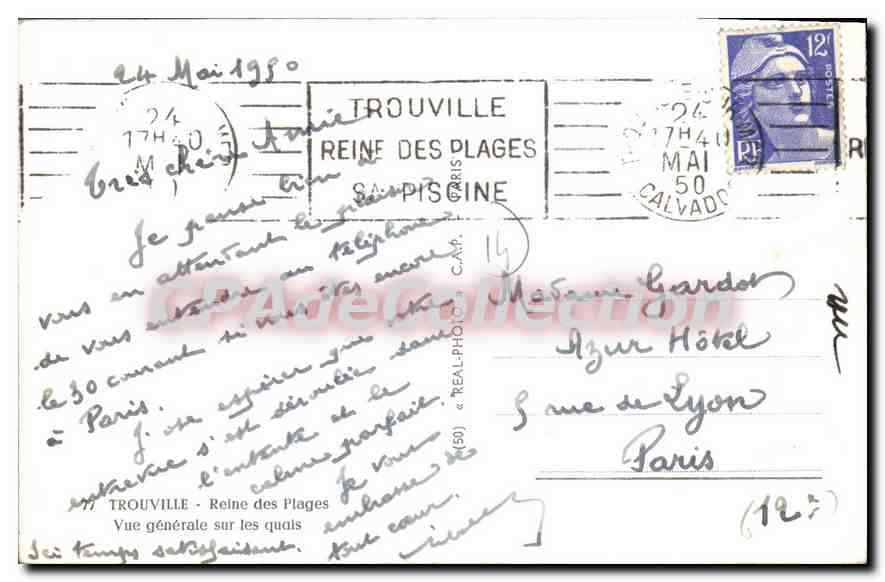 24 Mai 1950
Très chère Amie
Je pense bien à
vous en attendant le plaisir
de vous entendre au téléphone
le 30 courant si vous êtes encore
à Paris.
J'ose espérer que votre
entrevue s'est déroulée dans
l'entente et le
calme parfait.
Je vous
embrasse de
tout cœur.
Ici temps satisfaisant.
77 TROUVILLE - Reine des Plages
Vue générale sur les quais
24
17H40
M
TROUVILLE
REINE DES PLAGES
SA PISCINE
24
17H40
MAI
50
CALVADOS
12F
POSTES
RF
R
14
Madame Gardot
Azur Hôtel
5 rue de Lyon
Paris
vu
(12
(50) « REAL-PHOTO » C.A.P. PARIS
CPADeCollection